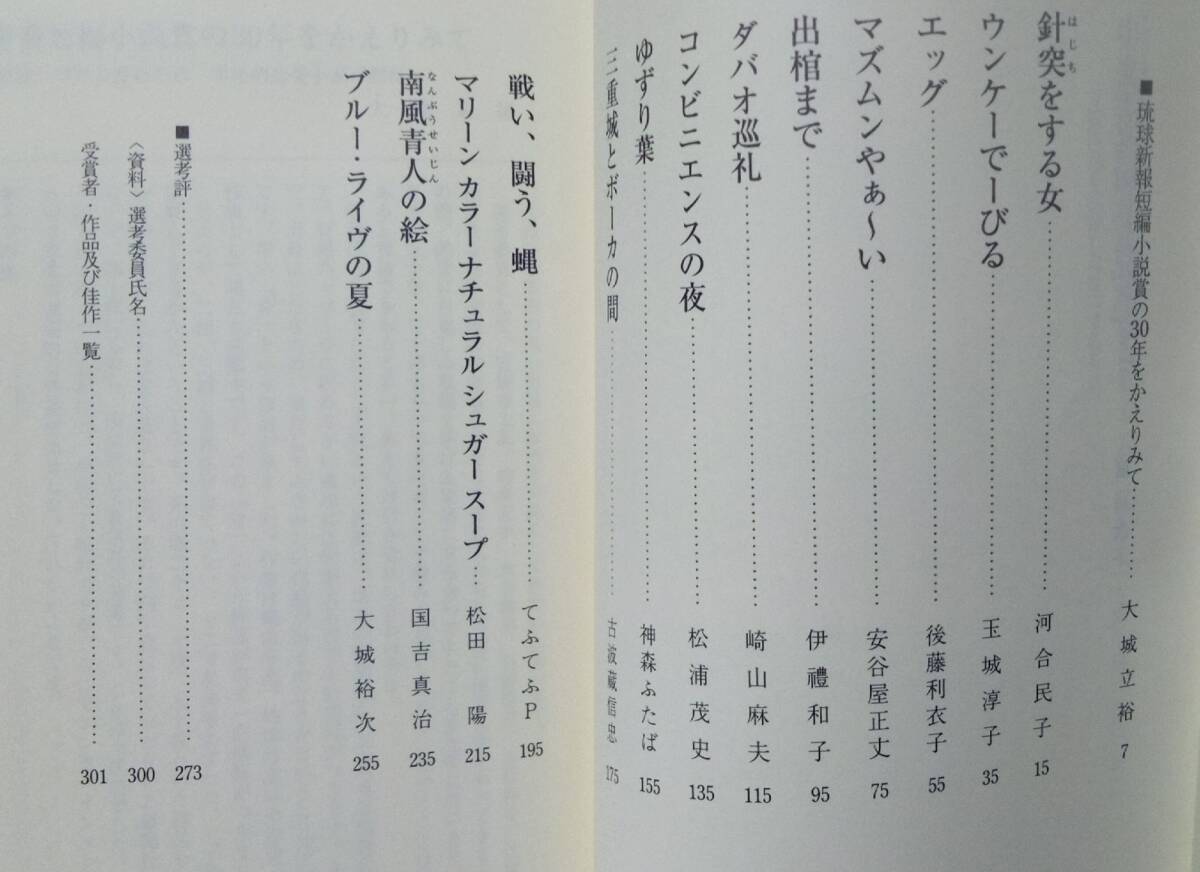 ■琉球新報短編小説賞の30年をかえりみて……… 大城立裕 7
針突をする女……… 河合民子 15
はじち
ウンケーでーびる……… 玉城淳子 35
エッグ……… 後藤利衣子 55
マズムンやぁ〜い……… 安谷屋正丈 75
出棺まで……… 伊禮和子 95
ダバオ巡礼……… 崎山麻夫 115
コンビニエンスの夜……… 松浦茂史 135
ゆずり葉……… 神森ふたば 155
三重城とポーカの間……… 古波蔵信忠 175
戦い、闘う、蝿……… てふてふP 195
マリーン カラーナチュラル シュガースープ… 松田陽 215
南風青人の絵……… 国吉真治 235
なんぶうせいじん
ブルー・ライヴの夏……… 大城裕次 255
■選考評……… 273
〈資料〉選考委員氏名……… 300
受賞者・作品及び佳作一覧……… 301